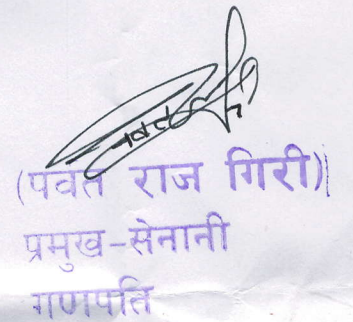 (पवत राज गिरी)
प्रमुख-सेनानी
गणपति